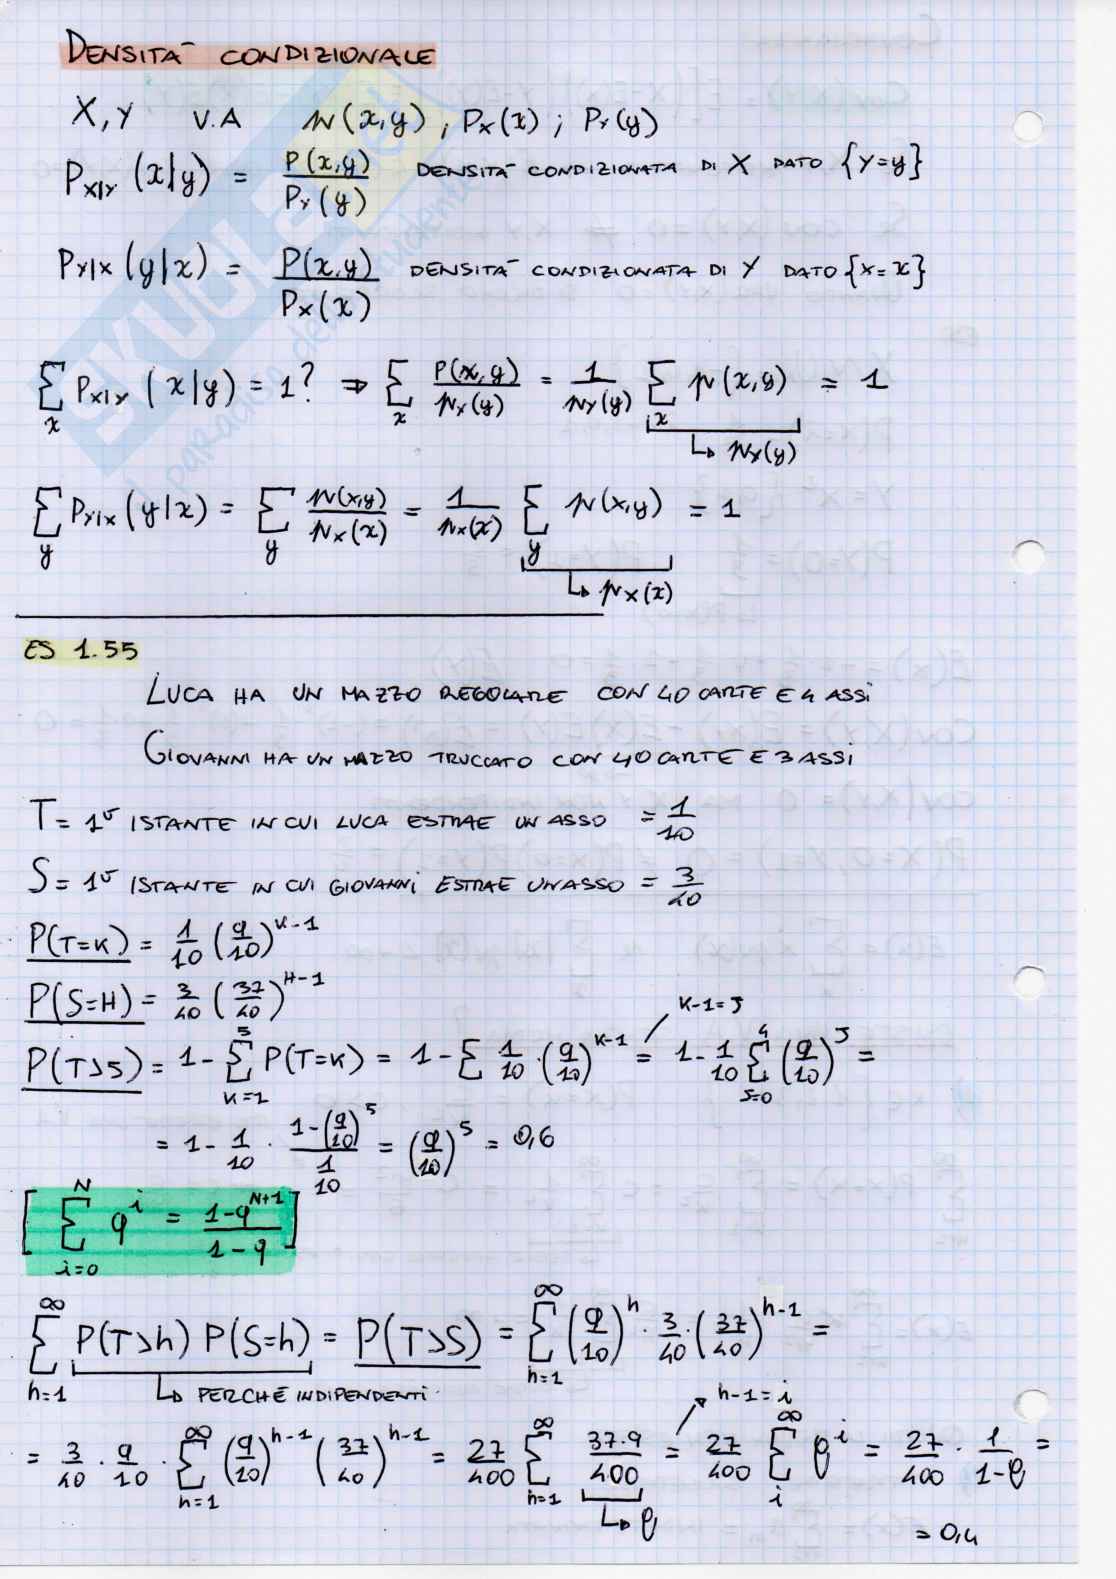 DENSITÀ CONDIZIONALE
X, Y V.A p(x,y) ; Px(x) ; Py(y)
Px|y (x|y) = P(x,y) / Py(y) DENSITÀ CONDIZIONATA DI X DATO {Y=y}
Py|x (y|x) = P(x,y) / Px(x) DENSITÀ CONDIZIONATA DI Y DATO {X=x}
Σx Px|y (x|y) = 1? ⇒ Σx P(x,y)/py(y) = 1/py(y) Σx p(x,y) = 1
↳ py(y)
Σy Py|x (y|x) = Σy p(x,y)/px(x) = 1/px(x) Σy p(x,y) = 1
↳ px(x)
ES 1.55
LUCA HA UN MAZZO REGOLARE CON 40 CARTE E 4 ASSI
GIOVANNI HA UN MAZZO TRUCCATO CON 40 CARTE E 3 ASSI
T = 1º ISTANTE IN CUI LUCA ESTRAE UN ASSO = 1/10
S = 1º ISTANTE IN CUI GIOVANNI ESTRAE UN ASSO = 3/40
P(T=K) = 1/10 (9/10)^K-1
P(S=H) = 3/40 (37/40)^H-1
K-1=J
P(T>5) = 1 - Σ(K=1, 5) P(T=K) = 1 - Σ 1/10 · (9/10)^K-1 = 1 - 1/10 Σ(J=0, 4) (9/10)^J =
= 1 - 1/10 · (1-(9/10)^5) / (1/10) = (9/10)^5 = 0,6
[ Σ(i=0, N) q^i = (1-q^N+1) / (1-q) ]
Σ(h=1, ∞) P(T>h) P(S=h) = P(T>S) = Σ(h=1, ∞) (9/10)^h · 3/40 · (37/40)^h-1 =
↳ PERCHÉ INDIPENDENTI
h-1=i
= 3/40 · 9/10 · Σ(h=1, ∞) (9/10)^h-1 (37/40)^h-1 = 27/400 Σ(h=1, ∞) 37·9/400 = 27/400 Σ(i, ∞) q^i = 27/400 · 1/(1-q) =
↳ q
= 0,4